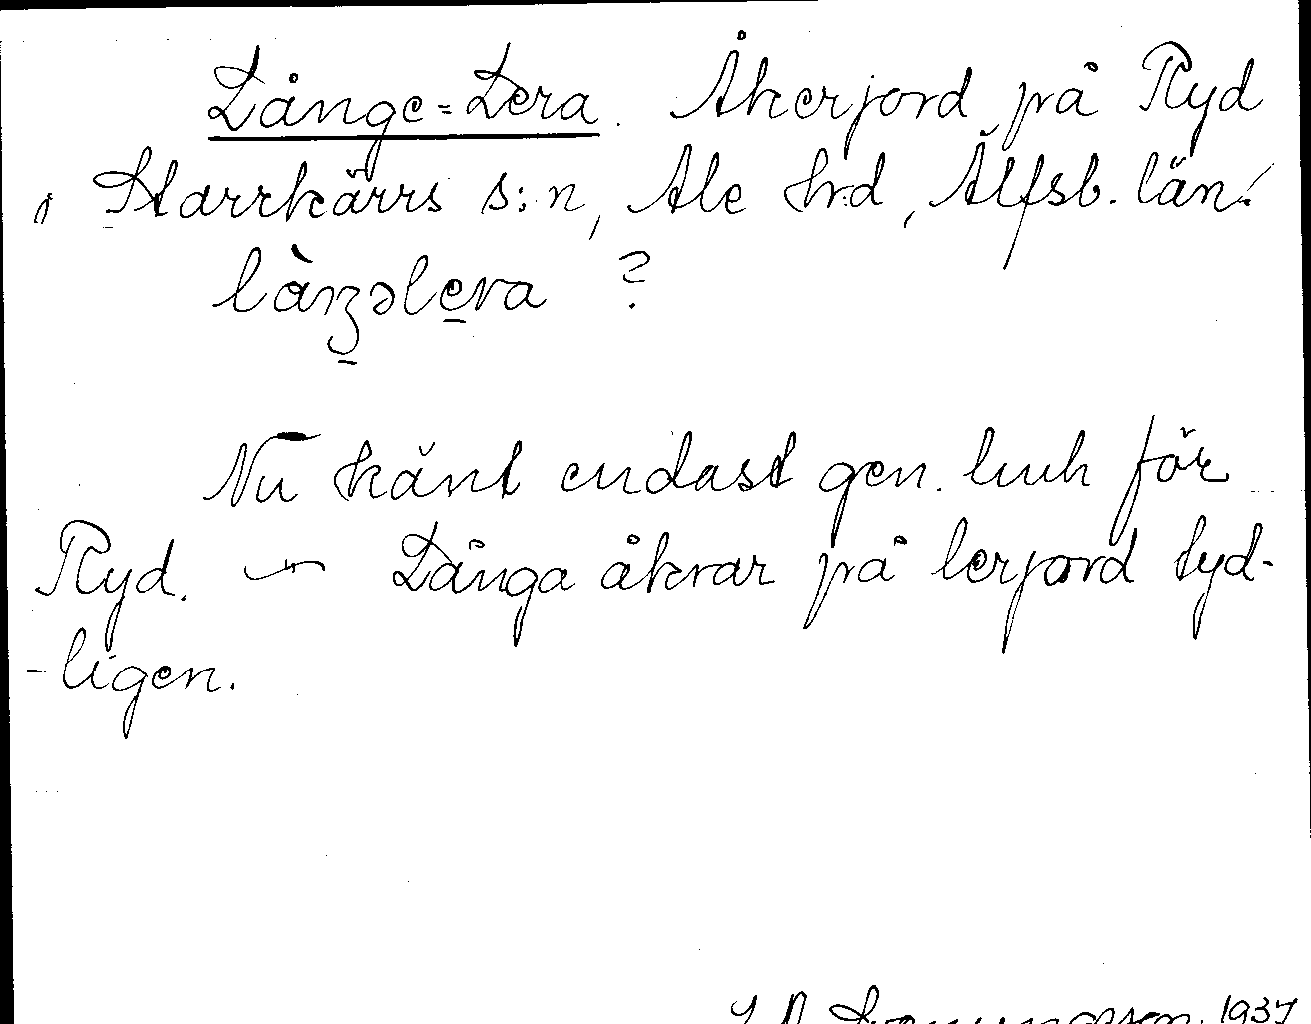 Långe=Lera. Åkerjord på Ryd
i Starrkärrs s:n, Ale hrd, Älfsb. län.
làŋəlera ?
Nu känt endast gen. luk för
Ryd. — Långa åkrar på lerjord tyd-
-ligen.
1937